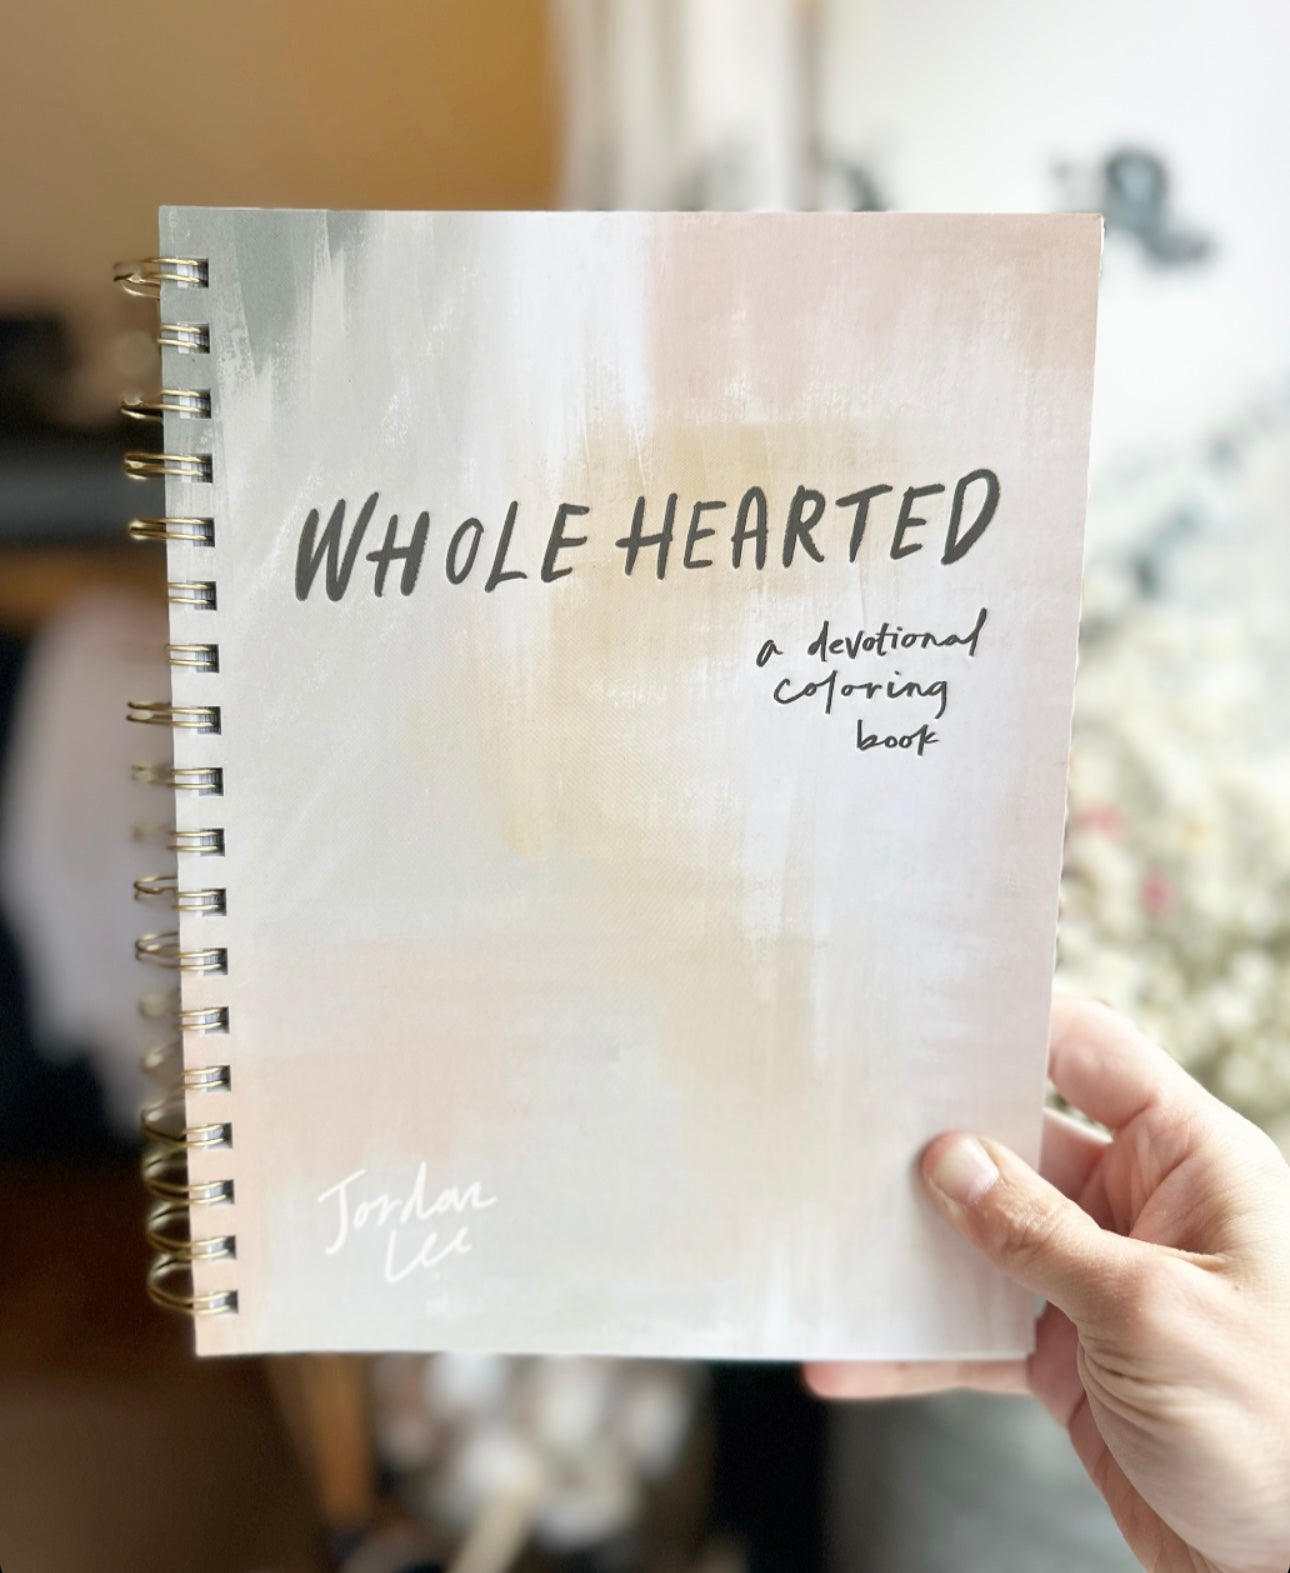 WHOLE HEARTED
a devotional
coloring
book
Jordan
Lee